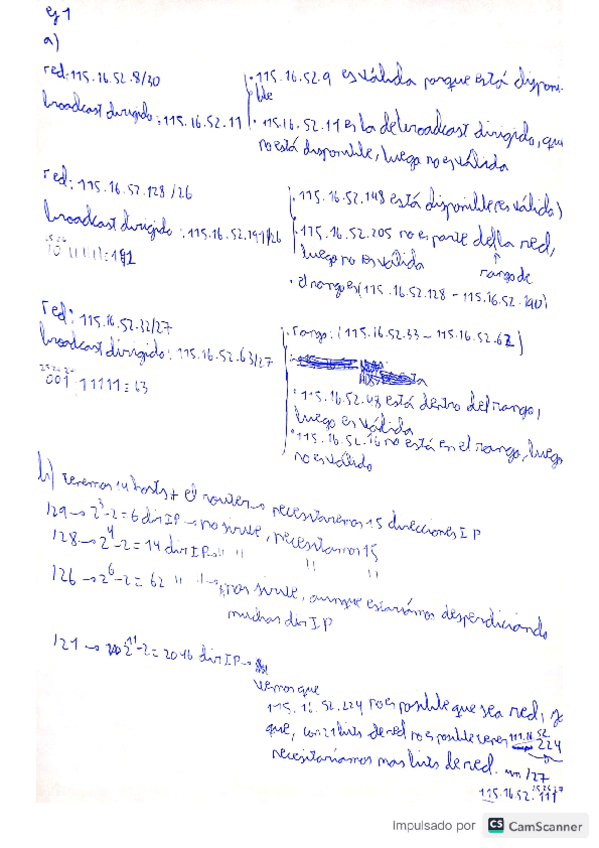 ej 1
a)
red: 115.16.52.8/30
broadcast dirigido: 115.16.52.11
· 115.16.52.9 es válida porque está disponi-
ble
· 115.16.52.11 es la del broadcast dirigido, que
no está disponible, luego no es válida
red: 115.16.52.128/26
broadcast dirigido: 115.16.52.191/26
10 111111 = 191
· 115.16.52.148 está disponible (es válida)
· 115.16.52.205 no es parte de la red,
luego no es válida
rango de
· el rango es (115.16.52.128 - 115.16.52.190)
red: 115.16.52.32/27
broadcast dirigido: 115.16.52.63/27
001 11111 = 63
· rango: (115.16.52.33 - 115.16.52.62)
· 115.16.52.48 está dentro del rango,
luego es válida
· 115.16.52.16 no está en el rango, luego
no es válido
b) Tenemos 14 hosts + el router → necesitaremos 15 direcciones IP
129 → 2^3-2=6 dir IP → no sirve, necesitamos 15
128 → 2^4-2=14 dir IP → " " " "
126 → 2^6-2=62 " " → nos sirve, aunque estaríamos desperdiciando
muchas dir IP
121 → 2^11-2=2046 dir IP →
vemos que
115.16.52.224 no es posible que sea red, ya
que, con 21 bits de red no es posible tener 115.16.52.224
necesitaríamos mas bits de red. un /27
115.16.52.111